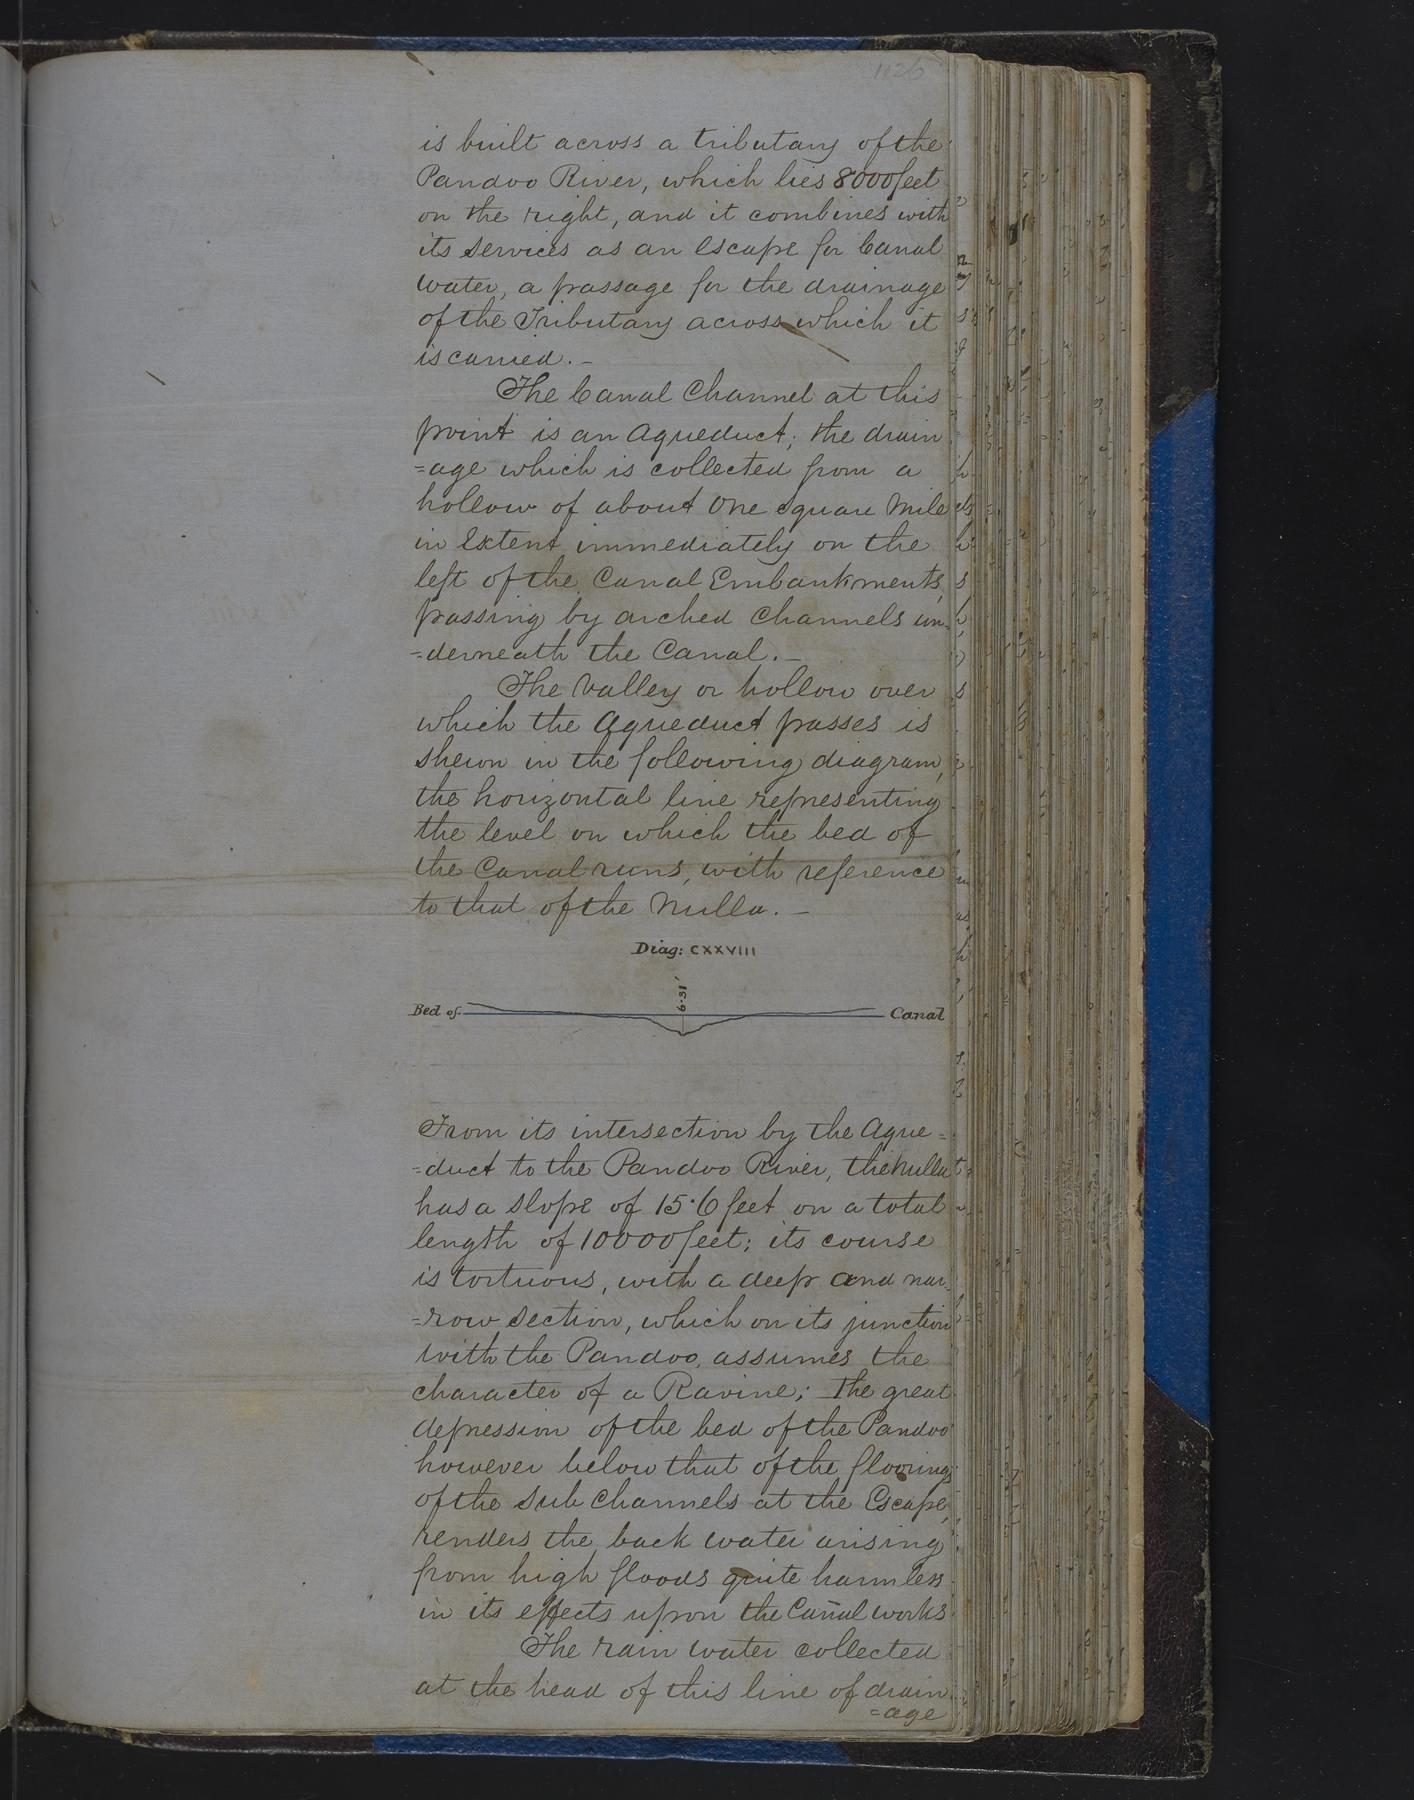 1126
is built across a tributary of the
Pandoo River, which lies 8000 feet
on the right, and it combines with
its services as an Escape for Canal
water, a passage for the drainage
of the Tributary across which it
is carried. –
The Canal Channel at this
point is an Aqueduct; the drain
=age which is collected from a
hollow of about One square Mile
in Extent immediately on the
left of the Canal Embankments,
passing by arched Channels un=
=derneath the Canal. –
The Valley or hollow over
which the Aqueduct passes is
shewn in the following diagram,
the horizontal line representing
the level on which the bed of
the Canal runs, with reference
to that of the Nulla. –
Diag: CXXVIII
6·31'
Bed of Canal
From its intersection by the Aque=
=duct to the Pandoo River, the Nulla
has a slope of 15·6 feet on a total
length of 10000 feet; its course
is tortuous, with a deep and nar=
=row section, which on its junction
with the Pandoo, assumes the
character of a Ravine; The great
depression of the bed of the Pandoo
however below that of the floorings
of the Sub Channels at the Escape,
renders the back water arising
from high floods quite harmless
in its effects upon the Canal works
The rain water collected
at the head of this line of drain
=age